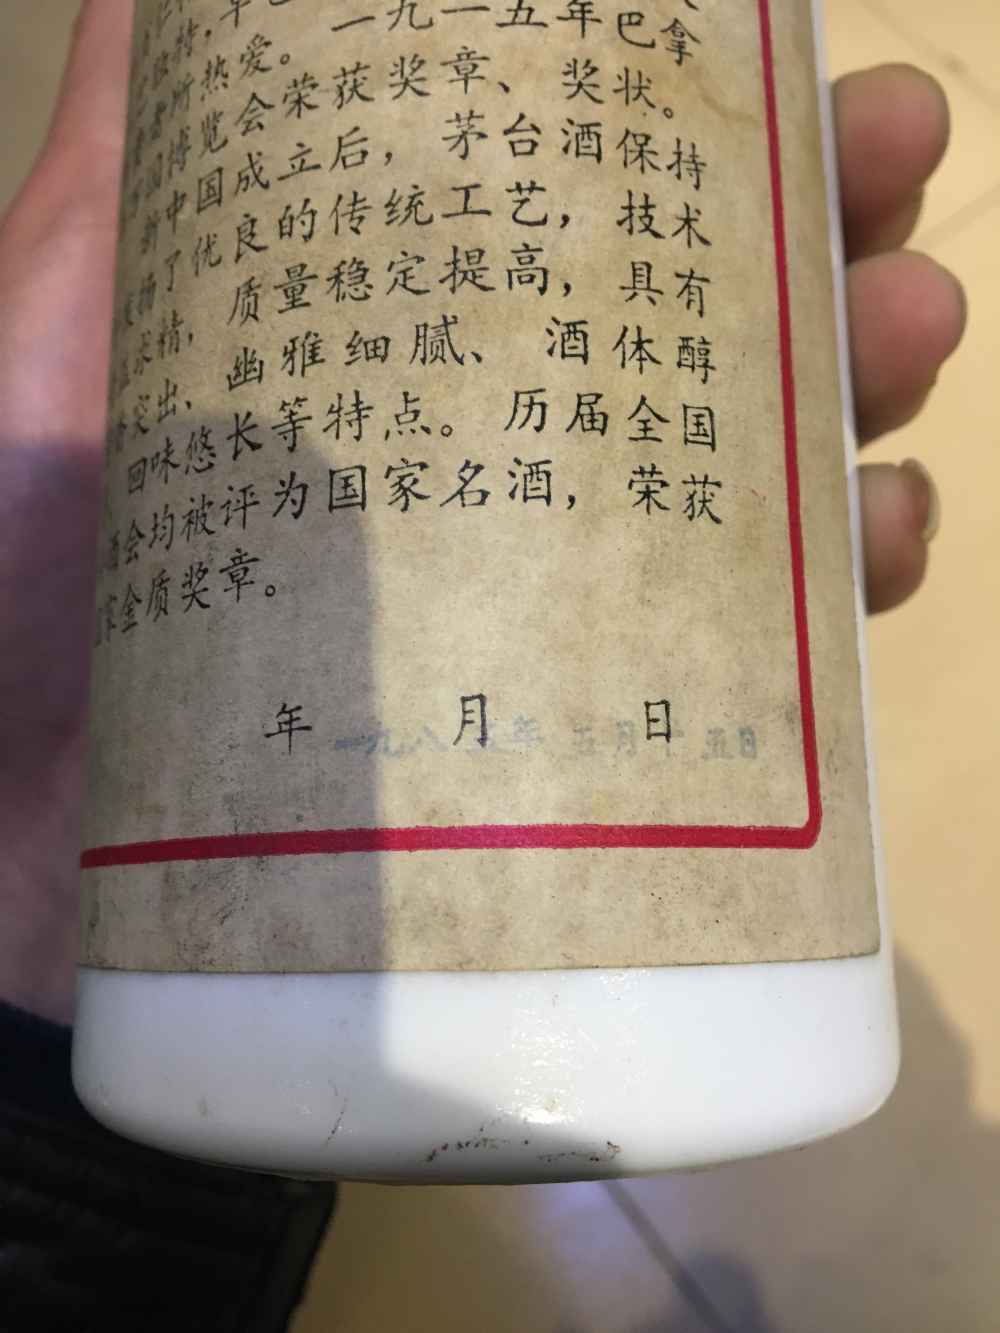 特，早
一九一五年巴拿
所热爱。
博览会荣获奖章、奖状。
新中国成立后，茅台酒保持
扬了优良的传统工艺，技术
求精，质量稳定提高，具有
突出、幽雅细腻、酒体醇
回味悠长等特点。历届全国
酒会均被评为国家名酒，荣获
家金质奖章。
年 月 日
一九八五年 五月十五日